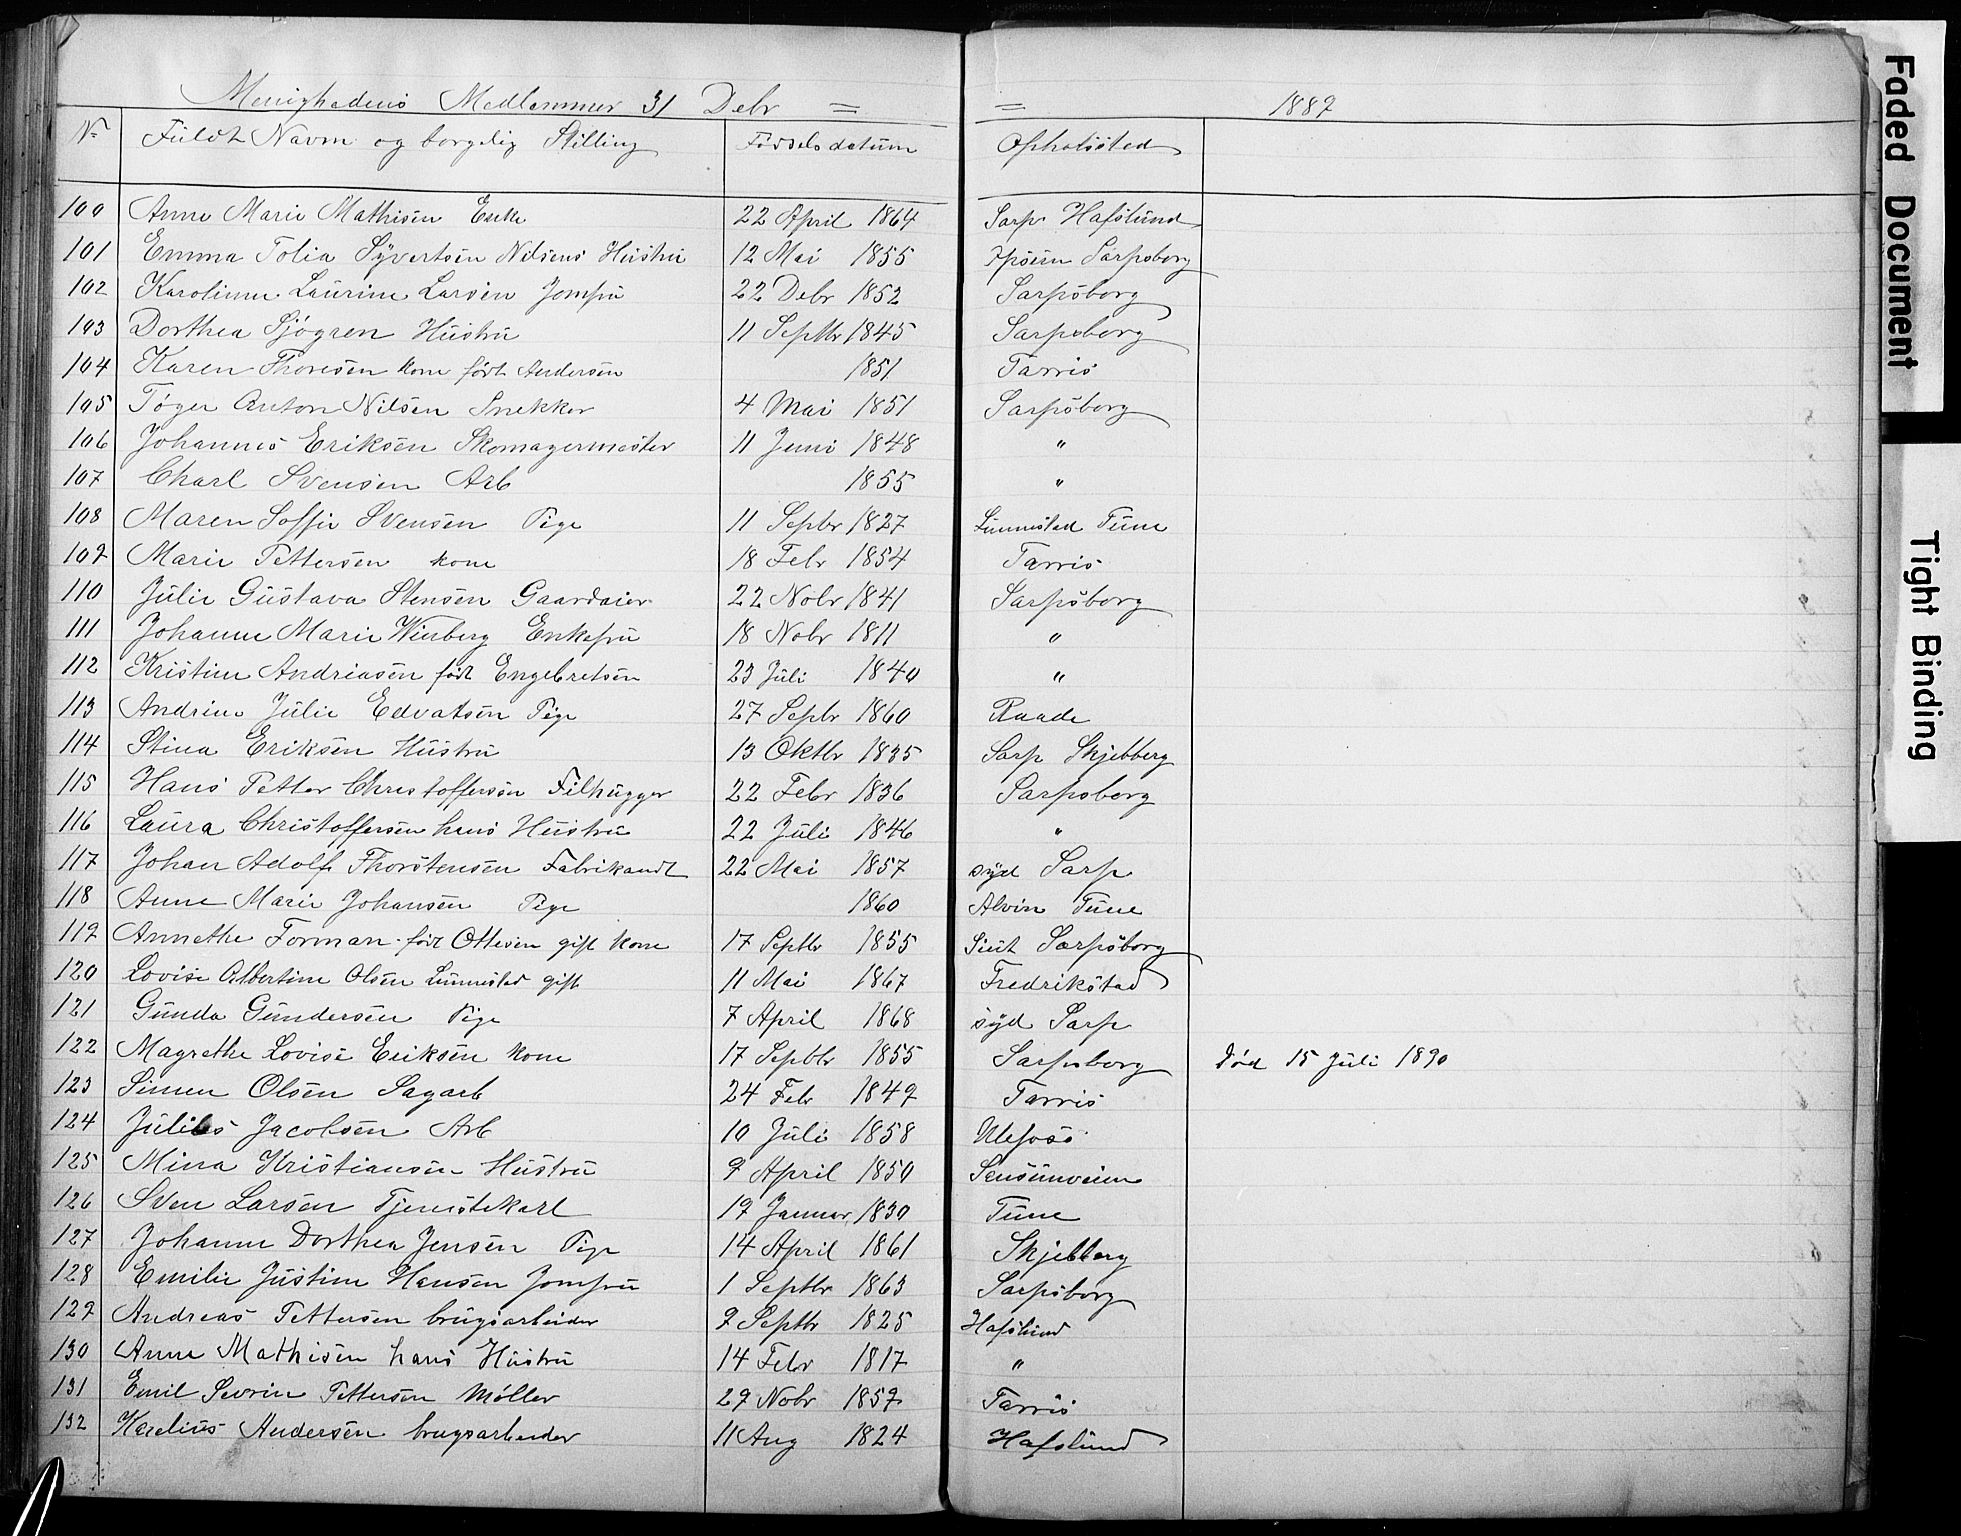 Menighedens Medlemmer 31 Debr = = 1889
No Füldt Navn og borgelig Stilling Födselsdatüm Opholdsted
100 Anne Marie Mathisen Enke 22 April 1864 Sarp Hafslünd
101 Emma Tolia Syvertsen Nilsens Hüstrü 12 Mai 1855 Sarpsborg
102 Karoline Laürine Larsen Jomfrü 22 Debr 1852 Sarpsborg
103 Dorthea Sjögren Hüstrü 11 Septbr 1845 Sarpsborg
104 Karen Thoresen kone född Andersen 1851 Tarris
105 Töger Anton Nilsen Snekker 4 Mai 1851 Sarpsborg
106 Johannes Eriksen Skomagermester 11 Juni 1848 "
107 Charl Svensen Arb 1855 "
108 Maren Soffie Svensen Pige 11 Septbr 1827 Lünnestad Tüne
109 Marie Pettersen kone 18 Febr 1854 Tarris
110 Jülie Güstava Stensen Gaardeier 22 Nobr 1841 Sarpsborg
111 Johanne Marie Winberg Enkefrü 18 Nobr 1811 "
112 Kristine Andriasen född Engebretsen 23 Jüli 1840 "
113 Andrine Jülie Edvatsen Pige 27 Sepbr 1860 Raade
114 Stina Eriksen Hüstrü 13 Oktbr 1835 Sarp Skjebberg
115 Hans Petter Christoffersen Filhügger 22 Febr 1836 Sarpsborg
116 Laüra Christoffersen hans Hüstrü 22 Jüli 1846 "
117 Johan Adolf Thorstensen Fabrikandt 22 Mai 1857 syd Sarp
118 Anne Marie Johansen Pige 1860 Alvin Tüne
119 Annethe Forman född Ottesen gift kone 17 Septbr 1855 Sarpsborg
120 Lovise Albertine Olsen Lünnestad gift 11 Mai 1867 Fredrikstad
121 Günda Gündersen Pige 7 April 1868 syd Sarp
122 Magrethe Lovise Eriksen kone 17 Septbr 1855 Sarpsborg död 15 Jüli 1890
123 Simen Olsen Sagarb 24 Feb 1849 Tarris
124 Jüliüs Jacobsen Arb 10 Jüli 1858 Ulefoss
125 Mina Kristiansen Hüstrü 9 April 1850 Sensünveien
126 Sven Larsen Tjenstekarl 19 Januar 1830 Tüne
127 Johanne Dorthea Jensen Pige 14 April 1861 Skjebberg
128 Emilie Jüstine Hansen Jomfrü 1 Septbr 1863 Sarpsborg
129 Andreas Pettersen brügsarbeider 9 Septbr 1825 Hafslünd
130 Anne Mathisen hans Hüstrü 14 Febr 1817 "
131 Emil Sevrin Pettersen Möller 29 Nobr 1859 Tarris
132 Karelius Andersen brügsarbeider 11 Aug 1824 Hafslünd
Faded Document
Tight Binding